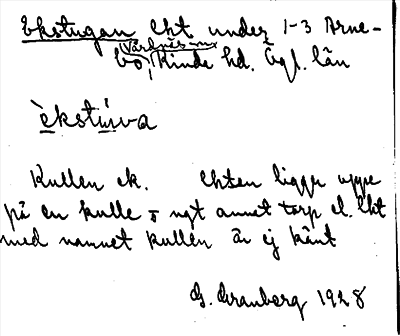 Ekstugan lht under 1-3 Arne-
bo, Vårdnäs sn Kinda hd. Ögl. län
èkstu̇va
Kullen ek. lhten ligger uppe
på en kulle o ngt annat torp el. lht
med namnet Kullen är ej känt
G. Granberg 1928